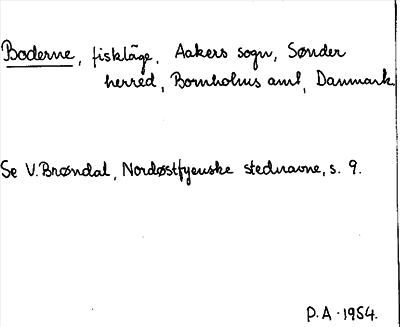 Boderne, fiskläge, Aakers sogn, Sønder
herred, Bornholms amt, Danmark
Se V. Brøndal, Nordøstfyenske stednavne, s. 9.
P.A. 1954.